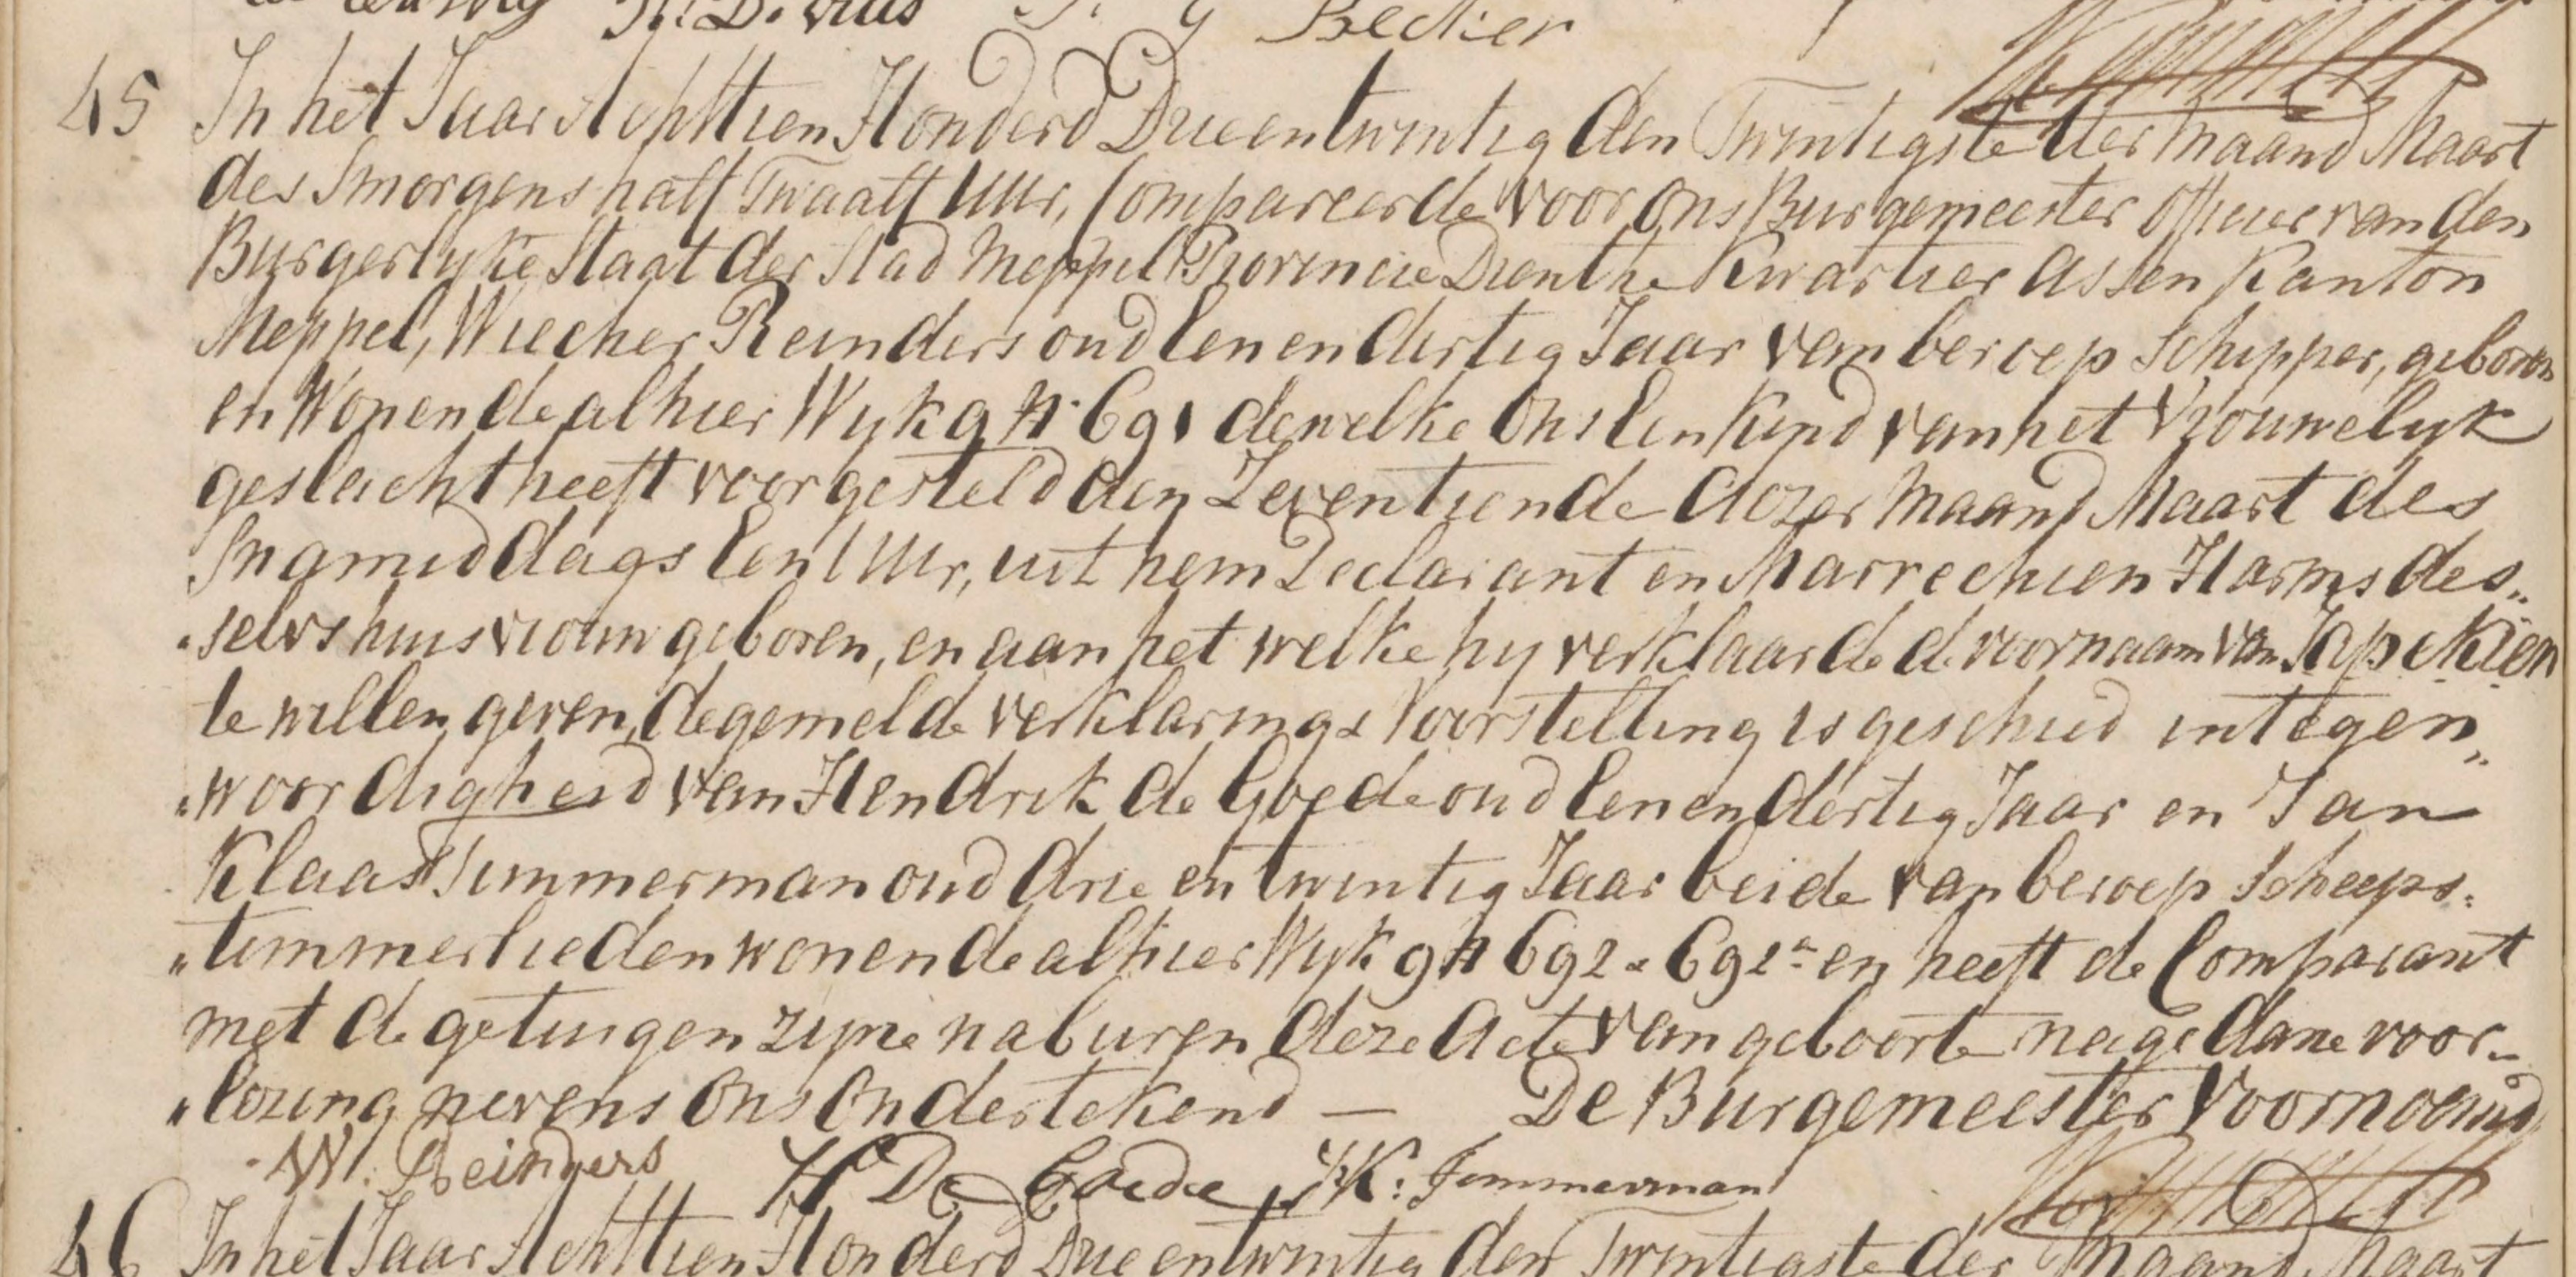 H: D. Vries Becker
45 In het Jaar Achttien Honderd Drieentwintig den Twintigste der maand Maart
des Smorgens half Twaalf Uur, Compareerde voor ons Burgemeester officier van den
Burgerlyke Staat der Stad Meppel Provincie Drenthe Kwartier Assen Kanton
Meppel, Wiecher Reinders oud Een en dertig Jaar van beroep Schipper, geboren
en Wonende alhier Wyk 9 N. 691 dewelke Ons Een Kind van het Vrouwelyk
geslacht heeft voorgesteld den Zeventiende dezer maand Maart des
Snamiddags Een Uur, uit hem Declarant en Marrechien Harms des„
„selvs huisvrouw geboren, en aan het welke hy verklaarde de voornaam van Japekien
te willen geven, degemelde verklaring & Voorstelling is geschied in tegen„
„woordigheid van Hendrik de Goede oud Een en dertig Jaar en Jan
Klaas Timmerman oud drie en twintig Jaar beide van beroep Scheeps„
„timmerlieden wonende alhier Wyk 9 N 692 & 692a en heeft de Comparant
met de getuigen zyne naburen deze Acte van geboorte na gedane voor„
„lezing nevens Ons Ondertekend — De Burgemeester Voornoemd
W. Reinders H De Goede J. K: Timmerman
46 In het Jaar Achttien Honderd Drieentwintig den Twintigste der maand Maart